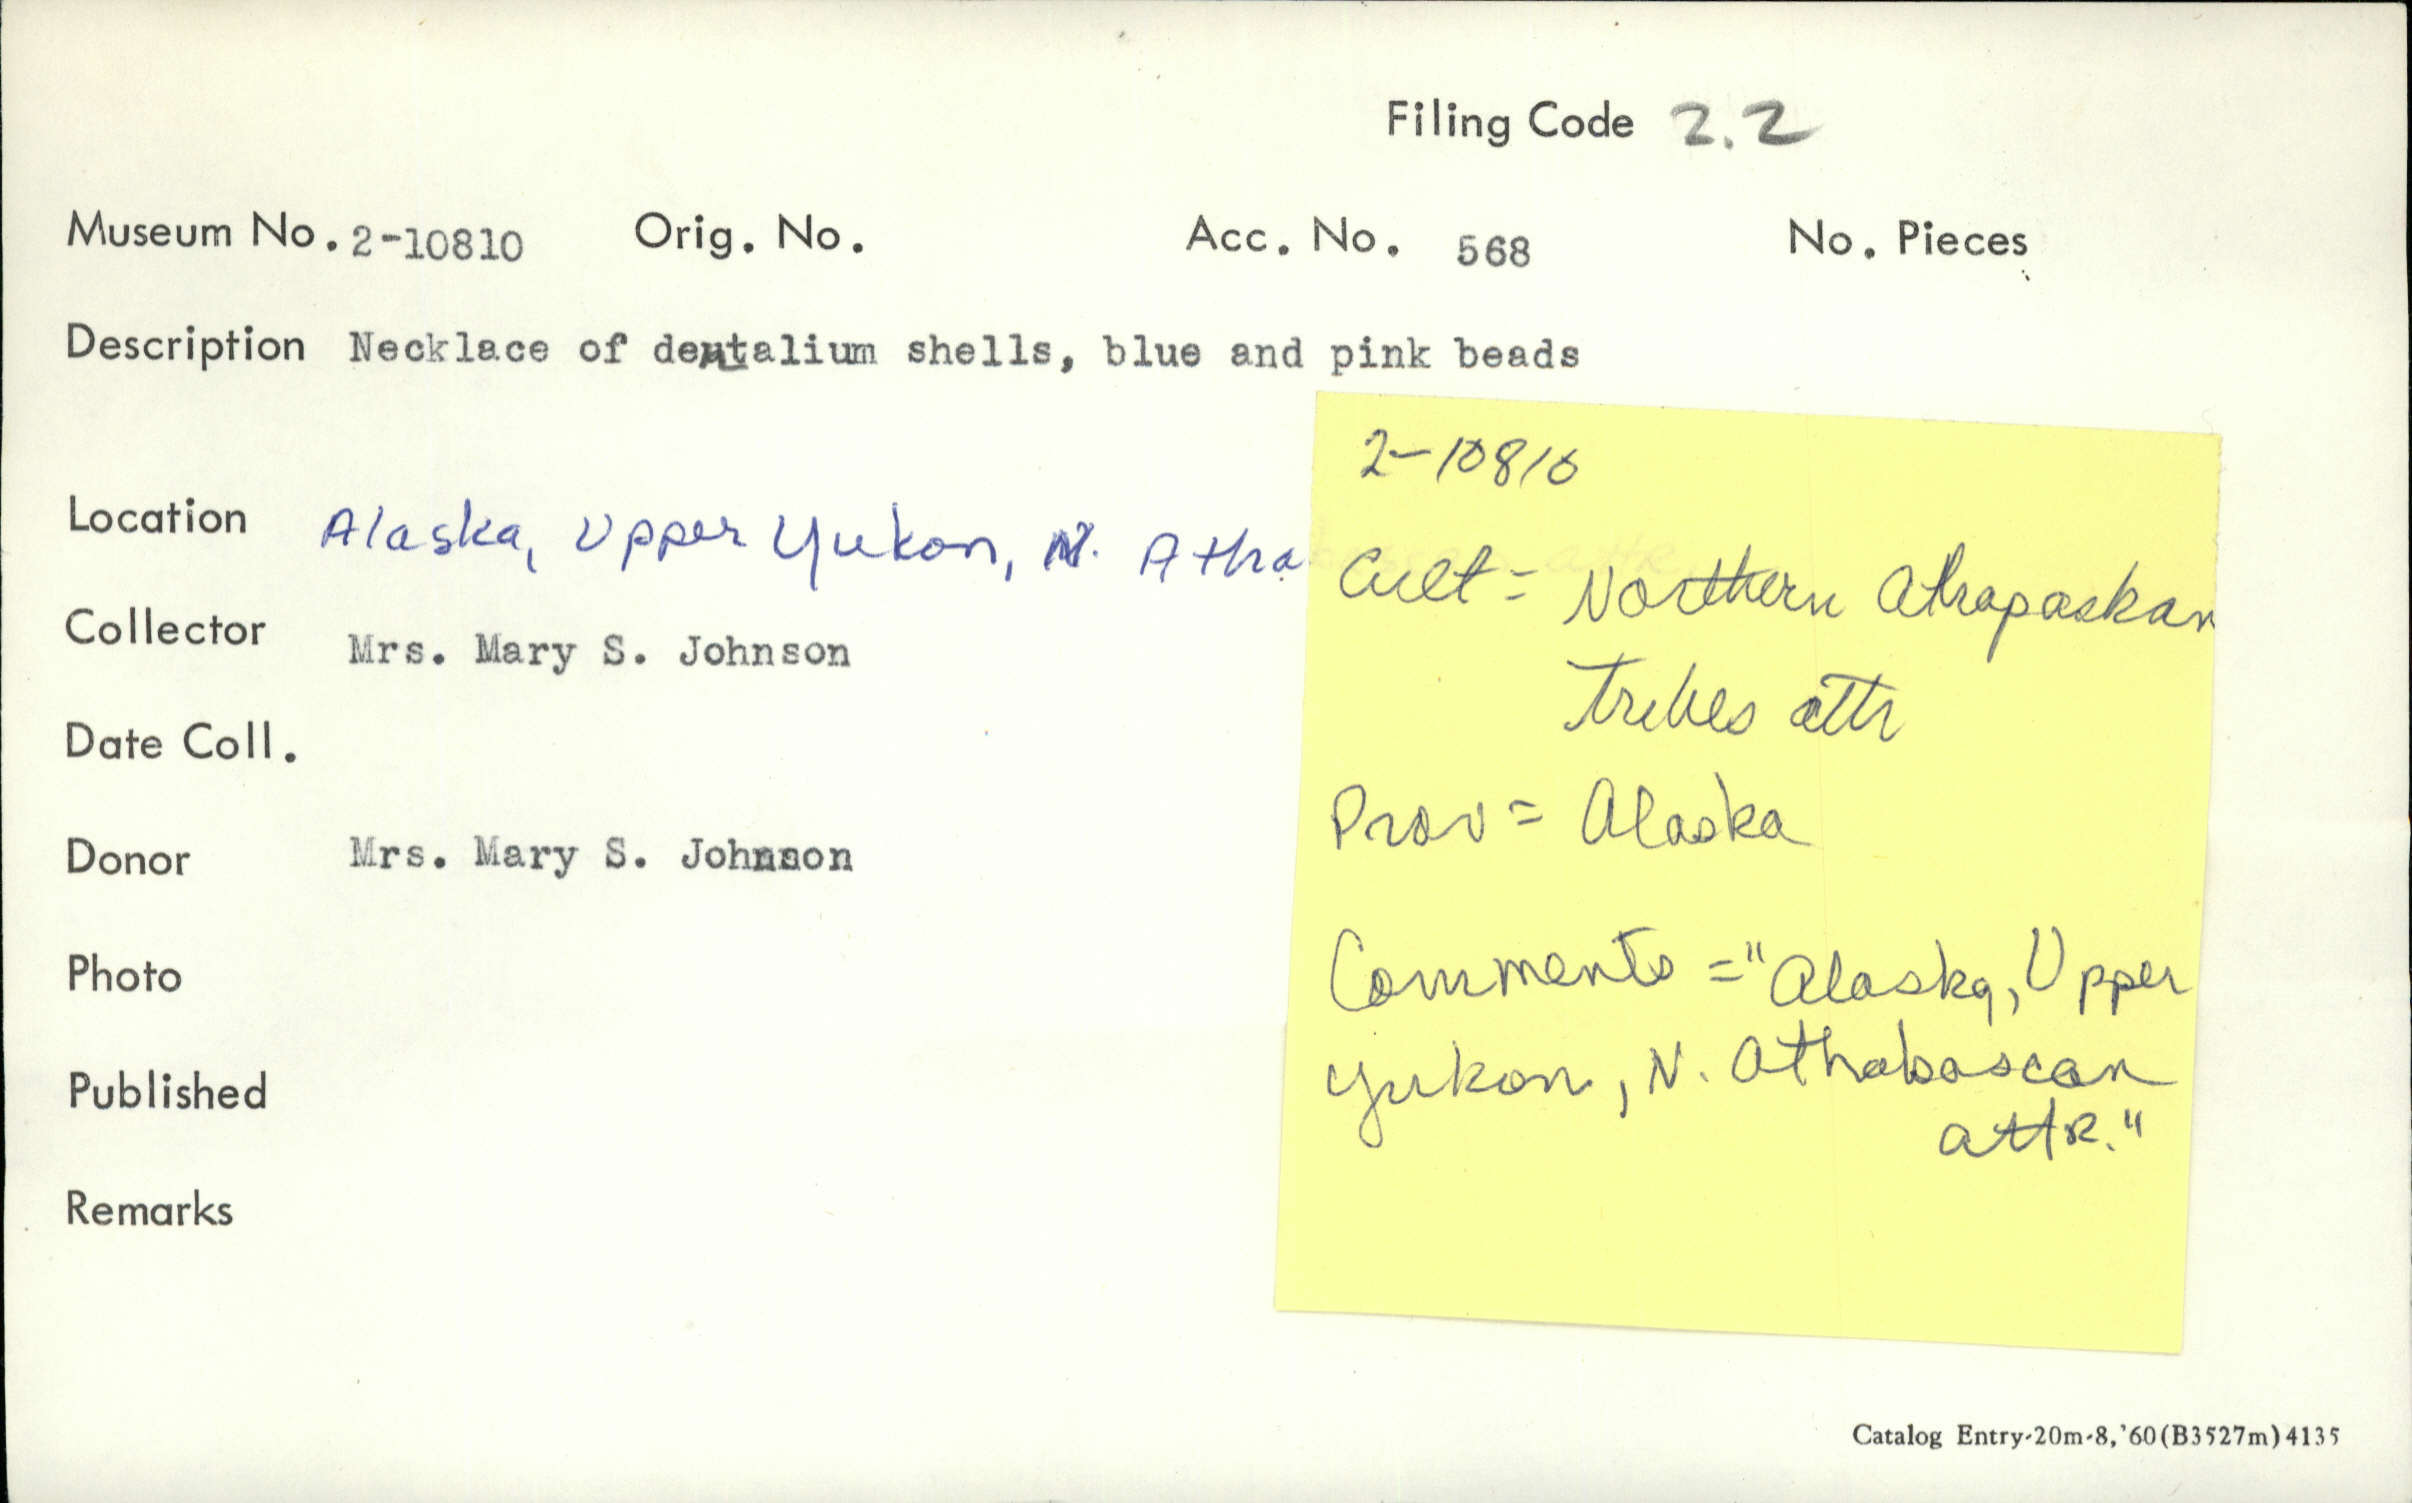 Filing Code 2.2
Museum No. 2-10810 Orig. No. Acc. No. 568 No. Pieces
Description Necklace of dentalium shells, blue and pink beads
Location Alaska, Upper Yukon, N. Atha
Collector Mrs. Mary S. Johnson
Date Coll.
Donor Mrs. Mary S. Johnson
Photo
Published
Remarks
2-10810
Cult = Northern Athapaskan
Tribes attr
Prov = Alaska
Comments = "Alaska, Upper
Yukon, N. Athabascan
attr."
Catalog Entry-20m-8,'60(B3527m)4135